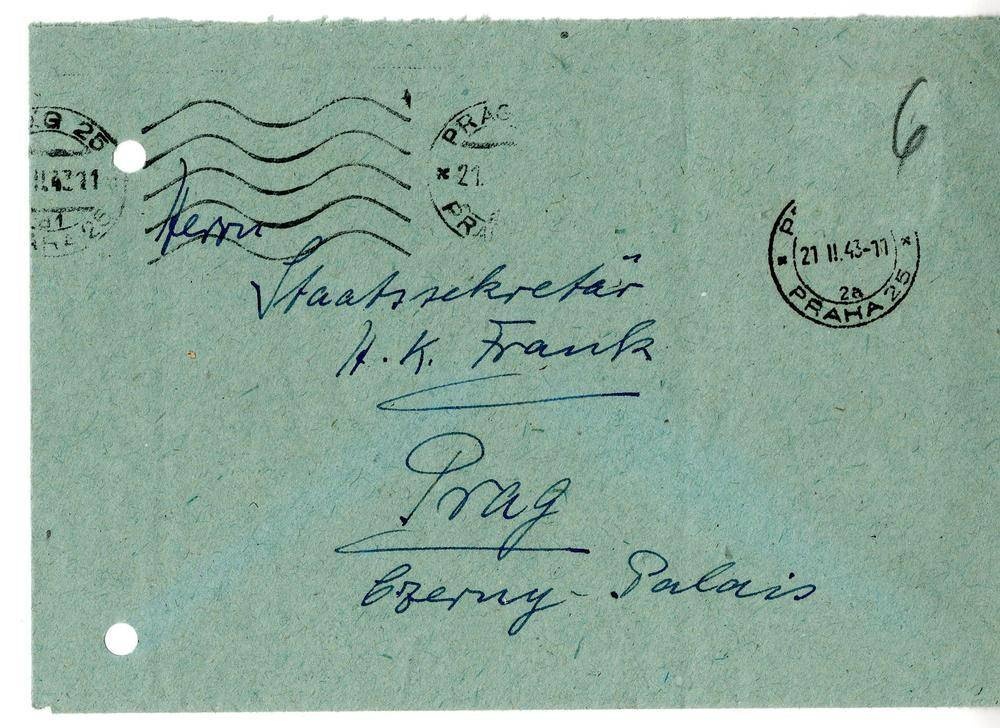 6
PRAG 25
II.43-11
PRAHA 25
PRAG
21.
21 II.43-11
2a
PRAHA 25
Herrn
Staatssekretär
H. K. Frank
Prag
Czerny-Palais